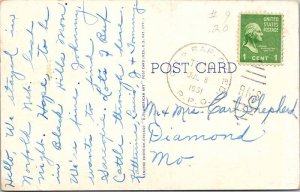 Hello. We stayed in
Norfolk Neb. last
night. Hope to be
in Black Hills Mon.
We're fine. Johnny
wants to send
Georgie Lots of Beef
Cattle through here.
Katherine, Earl J. & Tommy
#9
.20
RAPI
1951
R.P.O.
UNITED STATES POSTAGE
1 CENT 1
POST CARD
Mr & Mrs Earl Shepherd
Diamond
Mo.